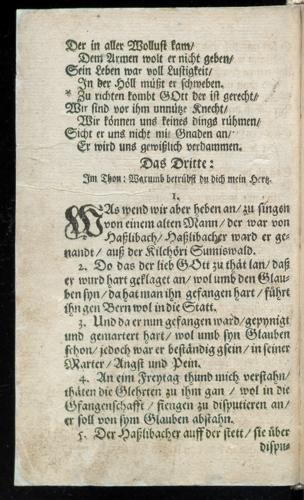 Der in aller Wollust kam/
Dem Armen wolt er nicht geben/
Sein Leben war voll Lustigkeit/
In der Höll müßt er schweben.
* Zu richten kombt GOtt der ist gerecht/
Wir sind vor ihm unnütze Knecht/
Wir können uns keines dings rühmen/
Sicht er uns nicht mit Gnaden an/
Er wird uns gewißlich verdammen.
Das Dritte:
Im Thon: Warumb betrübst du dich mein Hertz.
1.
WAs wend wir aber heben an/ zu singen
von einem alten Mann/ der war von
Haßlibach/ Haßlibacher ward er ge-
nandt/ auß der Kilchöri Sumiswald.
2. Do das der lieb GOtt zu thät lan/ daß
er wurd hart geklaget an/ wol umb den Glau-
ben syn/ da hat man ihn gefangen hart/ führt
ihn gen Bern wol in die Statt.
3. Und da er nun gefangen ward/ gepynigt
und gemartert hart/ wol umb syn Glauben
schon/ jedoch war er beständig gsein/ in seiner
Marter/ Angst und Pein.
4. An eim Freytag thund mich verstahn/
thäten die Glehrten zu ihm gan/ wol in die
Gfangenschafft/ fiengen zu disputieren an/
er soll von sym Glauben abstahn.
5. Der Haßlibacher auff der stett/ sie über
dispu-